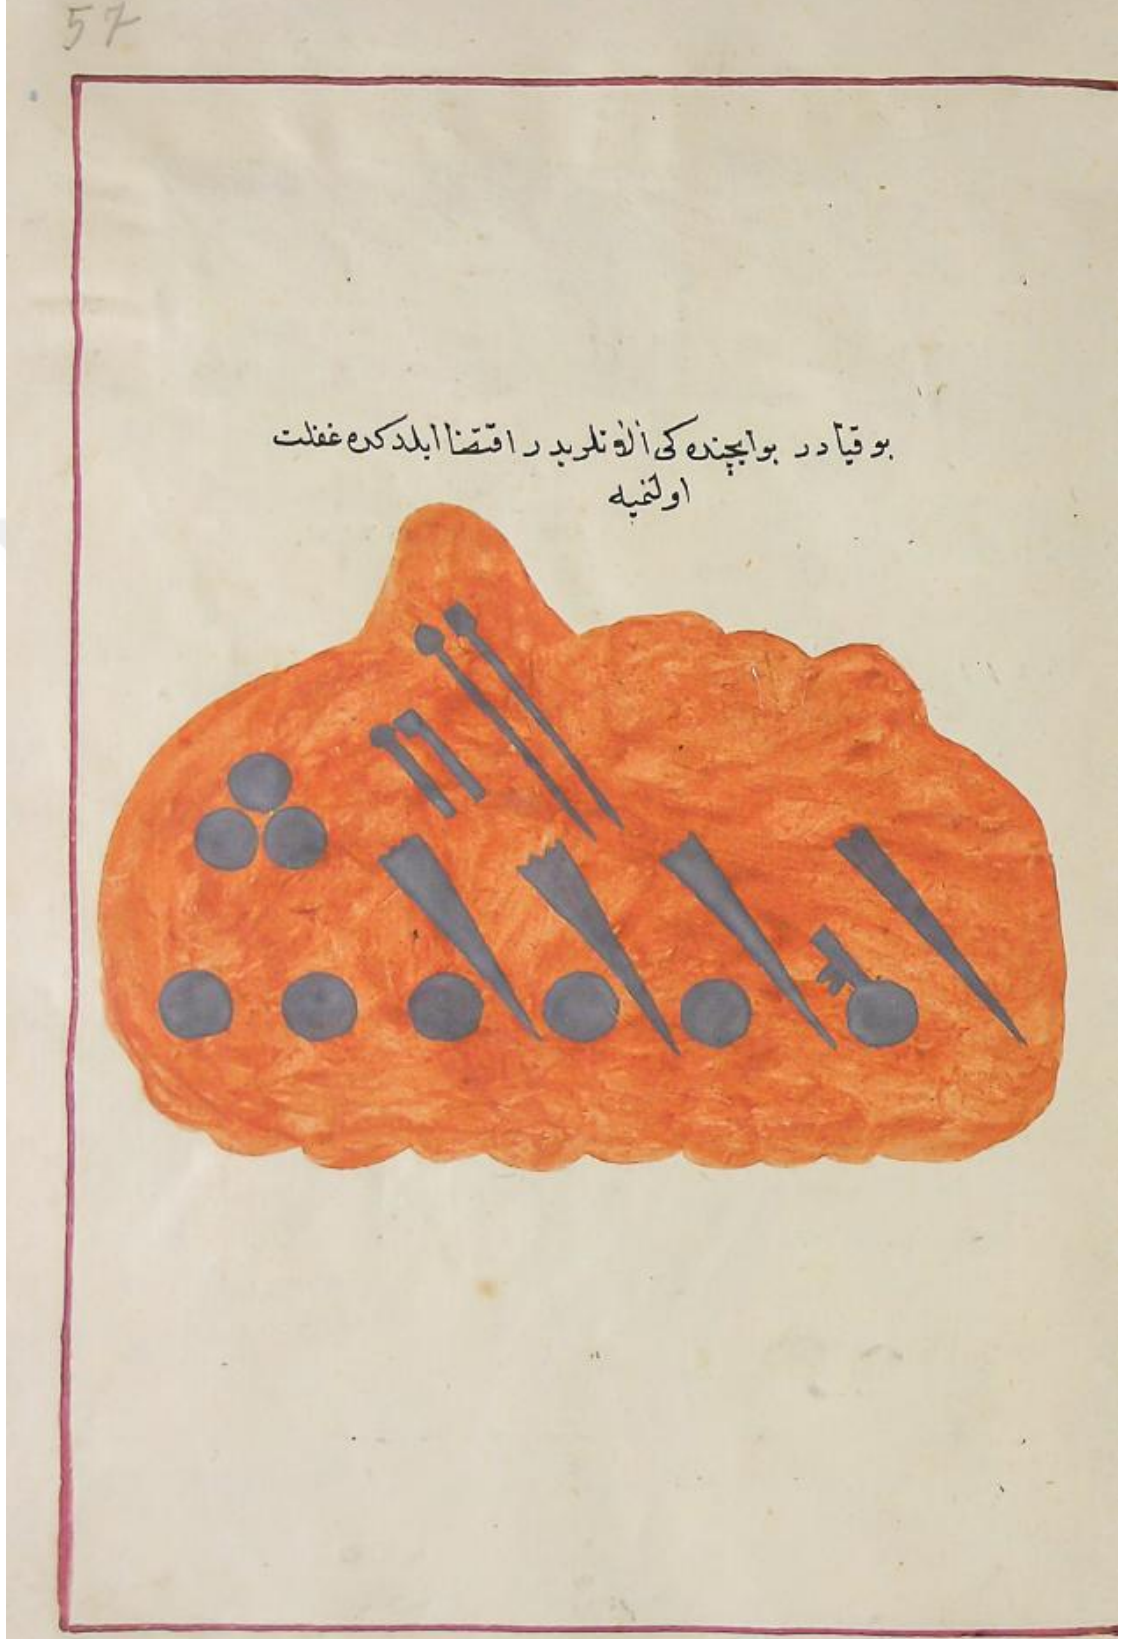 57
بو قیا در بو ایچنده کی آلاتلریدر اقتضا ایلدکده غفلت
اولنمیه